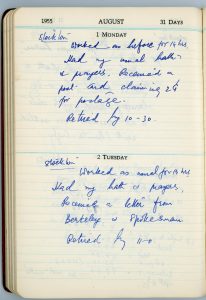 1955 AUGUST 31 DAYS
1 MONDAY
Stockton
Worked as before for 14 hrs
Had my usual bath
& prayers. Received a
post card claiming 2¢
for postage.
Retired by 10-30.
2 TUESDAY
Stockton
Worked as usual for 14 hrs
Had my bath & prayers,
Received a letter from
Berkeley & Spokesman
Retired by 11-0